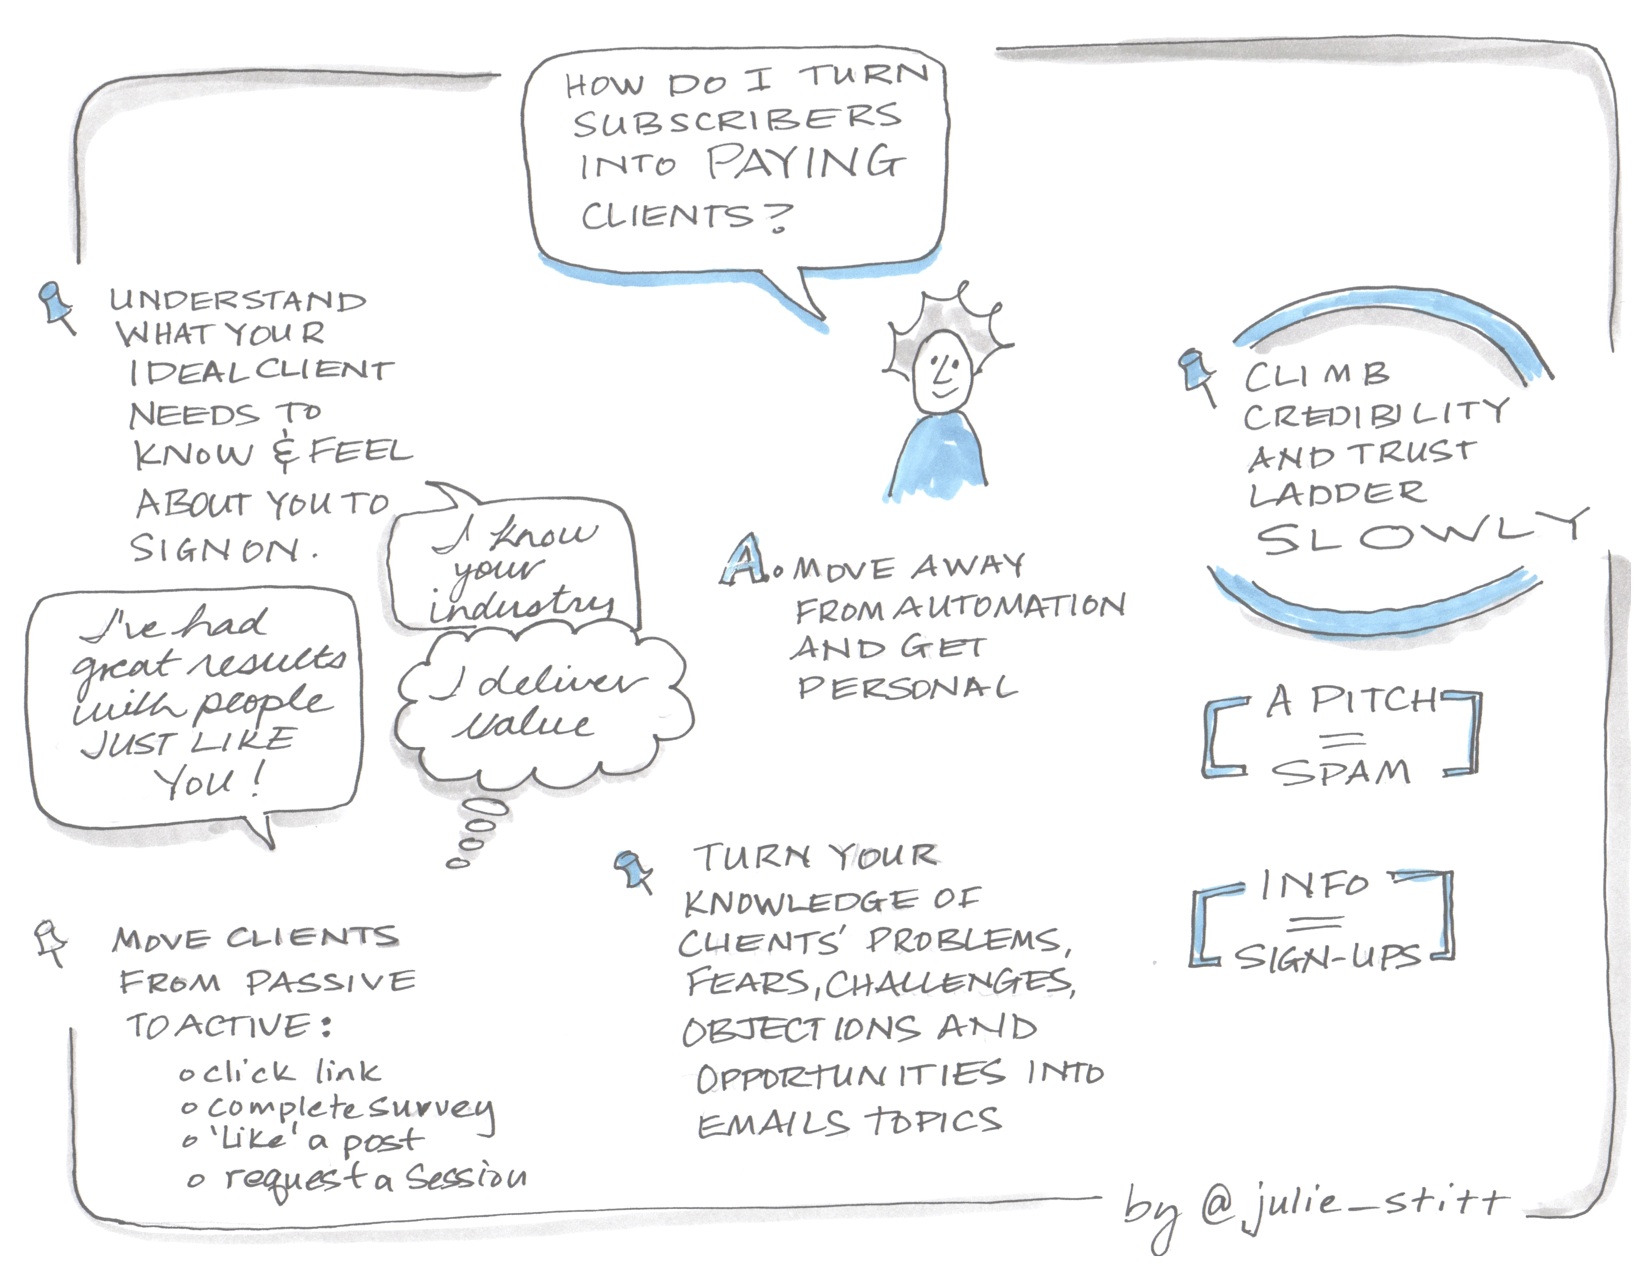 HOW DO I TURN
SUBSCRIBERS
INTO PAYING
CLIENTS?
UNDERSTAND
WHAT YOUR
IDEAL CLIENT
NEEDS TO
KNOW & FEEL
ABOUT YOU TO
SIGN ON.
I know
your
industry
I've had
great results
with people
JUST LIKE
YOU!
I deliver
value
A. MOVE AWAY
FROM AUTOMATION
AND GET
PERSONAL
CLIMB
CREDIBILITY
AND TRUST
LADDER
SLOWLY
A PITCH
=
SPAM
INFO
=
SIGN-UPS
MOVE CLIENTS
FROM PASSIVE
TO ACTIVE:
o click link
o complete survey
o 'Like' a post
o request a session
TURN YOUR
KNOWLEDGE OF
CLIENTS' PROBLEMS,
FEARS, CHALLENGES,
OBJECTIONS AND
OPPORTUNITIES INTO
EMAILS TOPICS
by @julie_stitt